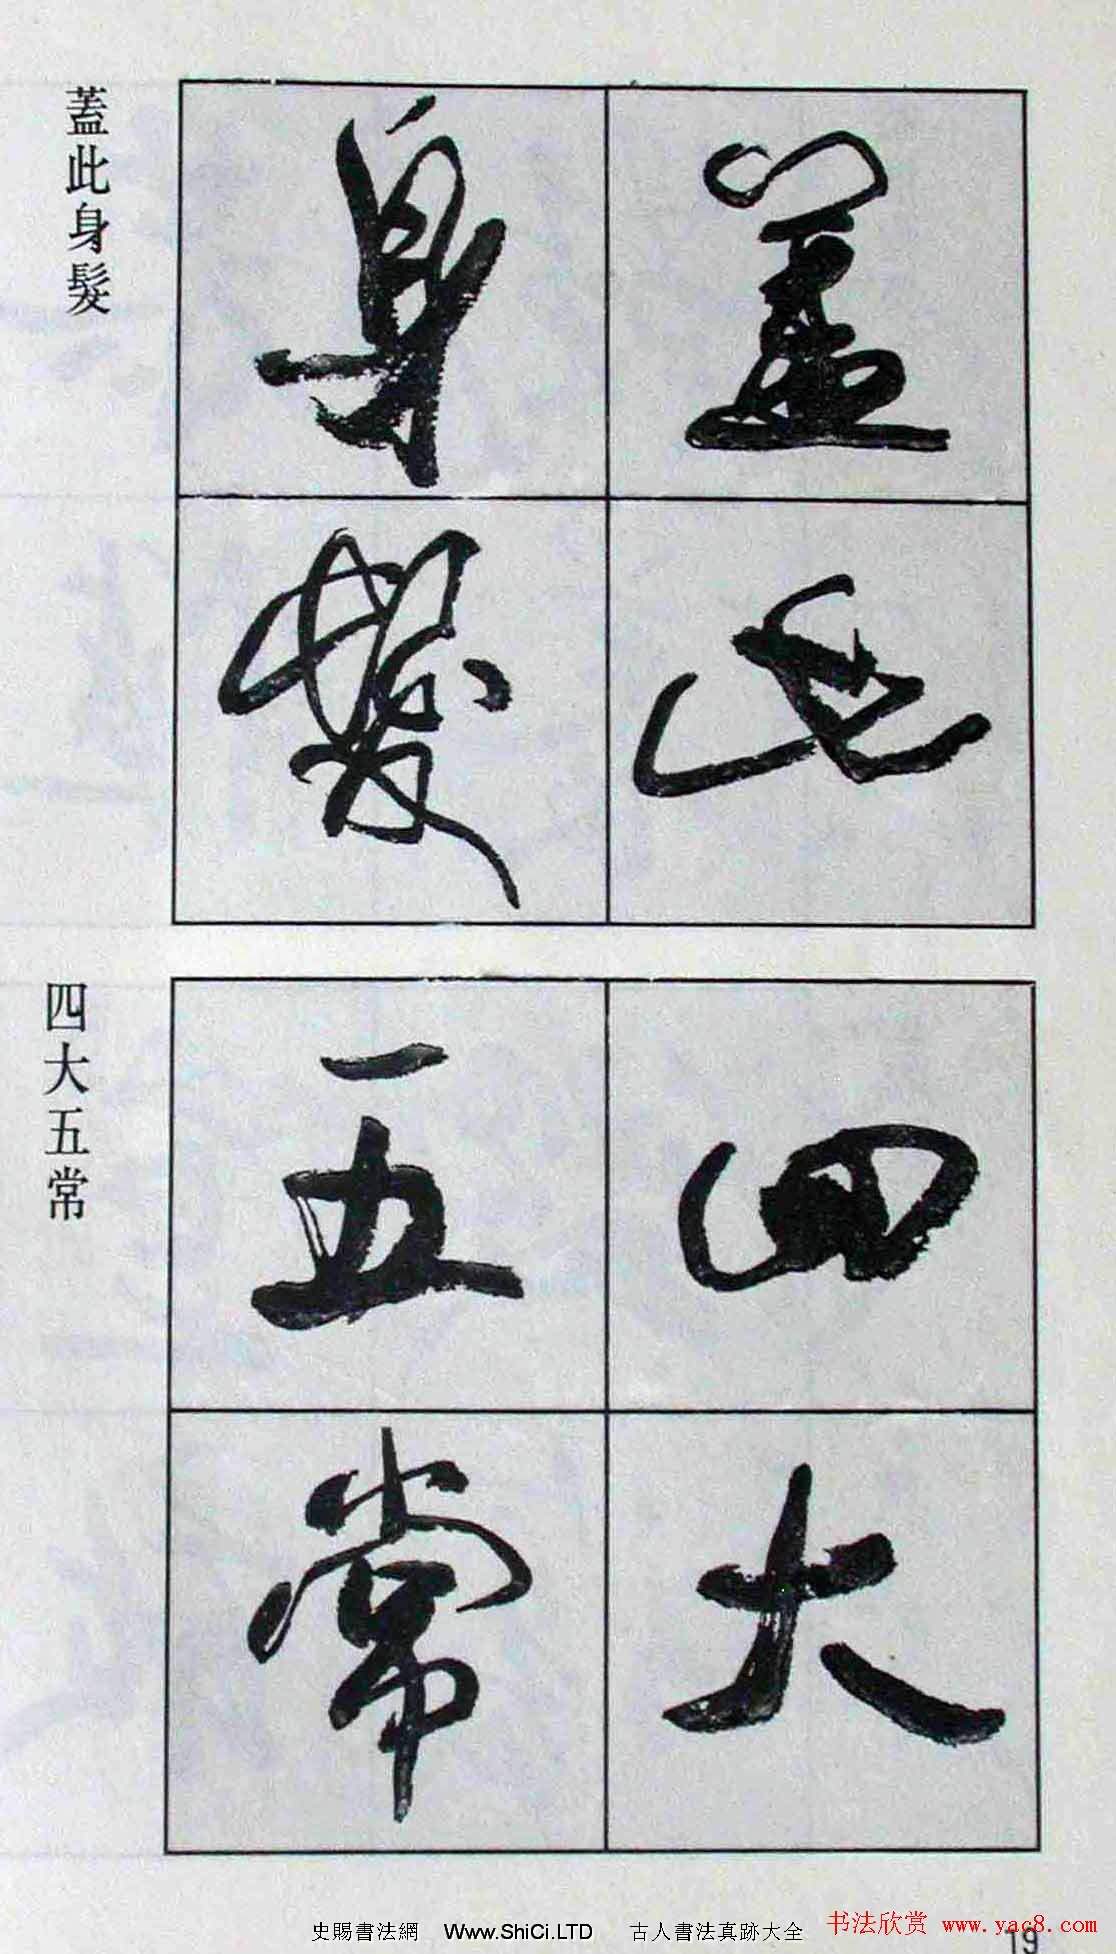 蓋此
身髮
蓋此身髮
四大
五常
四大五常
19
史賜書法網 Www.ShiCi.LTD 古人書法真跡大全
书法欣赏 www.yac8.com